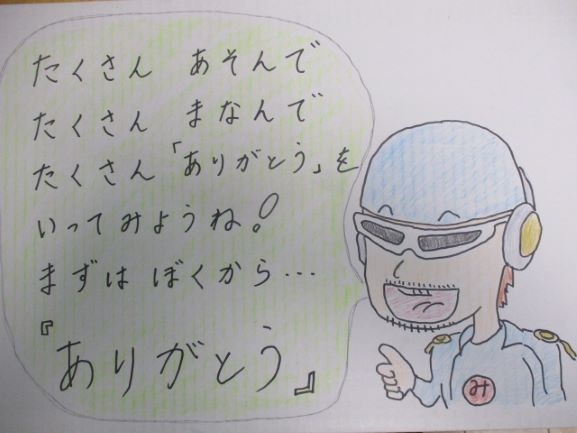 たくさん あそんで
たくさん まなんで
たくさん「ありがとう」を
いってみようね!
まずは ぼくから…
『ありがとう』
み